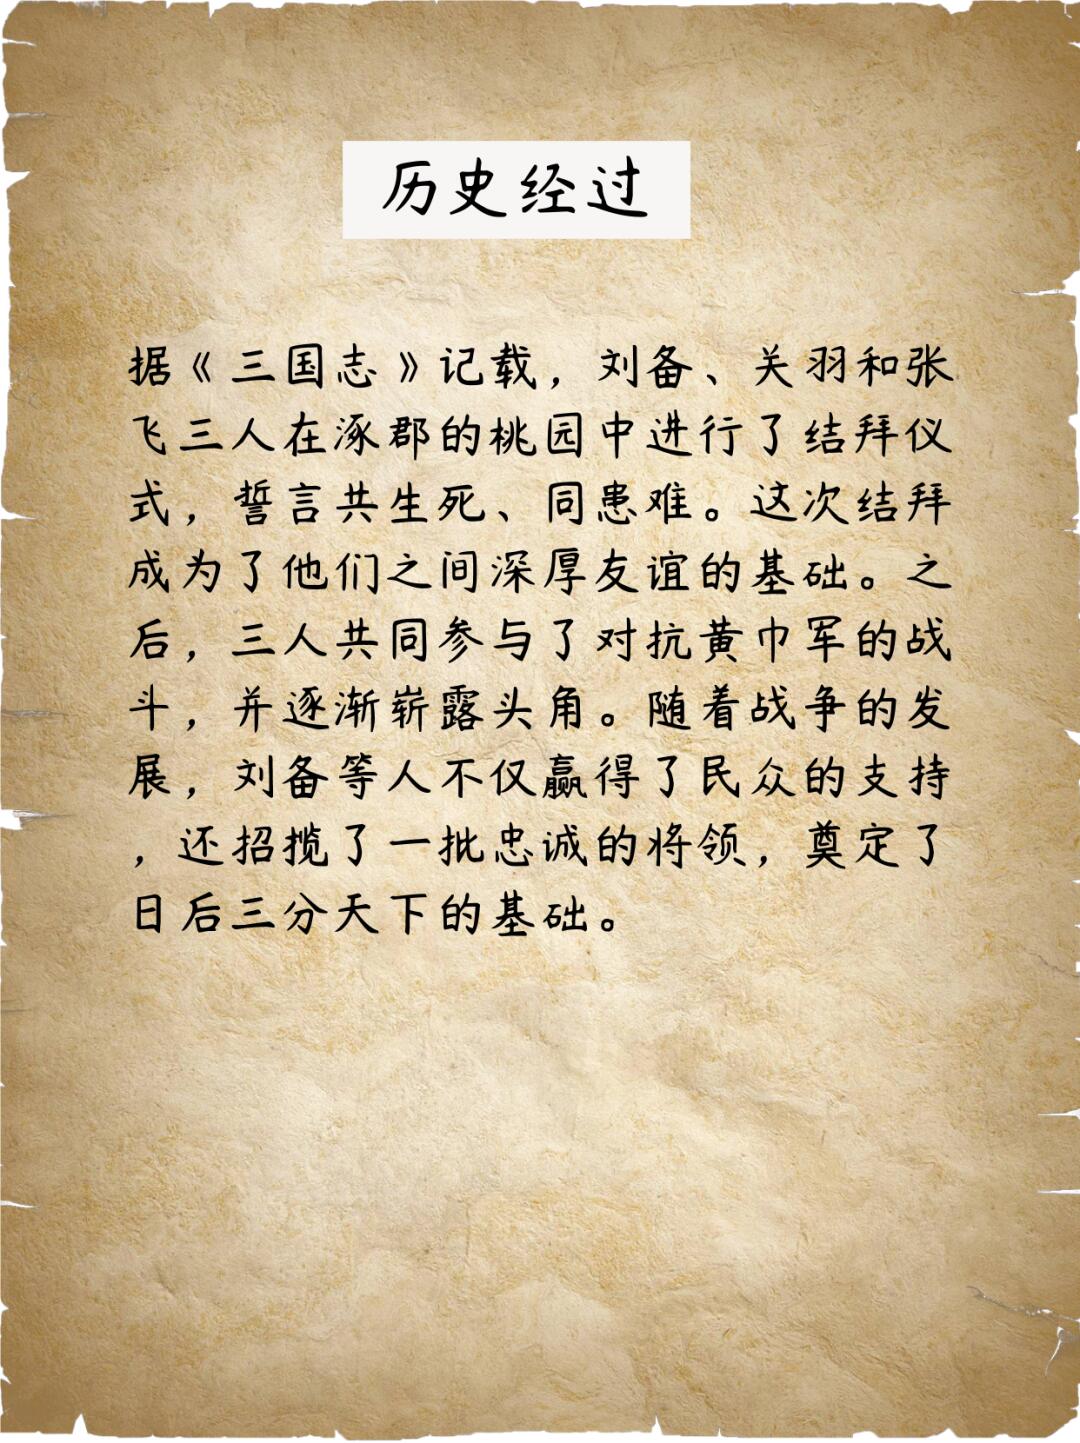 历史经过
据《三国志》记载，刘备、关羽和张
飞三人在涿郡的桃园中进行了结拜仪
式，誓言共生死、同患难。这次结拜
成为了他们之间深厚友谊的基础。之
后，三人共同参与了对抗黄巾军的战
斗，并逐渐崭露头角。随着战争的发
展，刘备等人不仅赢得了民众的支持
，还招揽了一批忠诚的将领，奠定了
日后三分天下的基础。